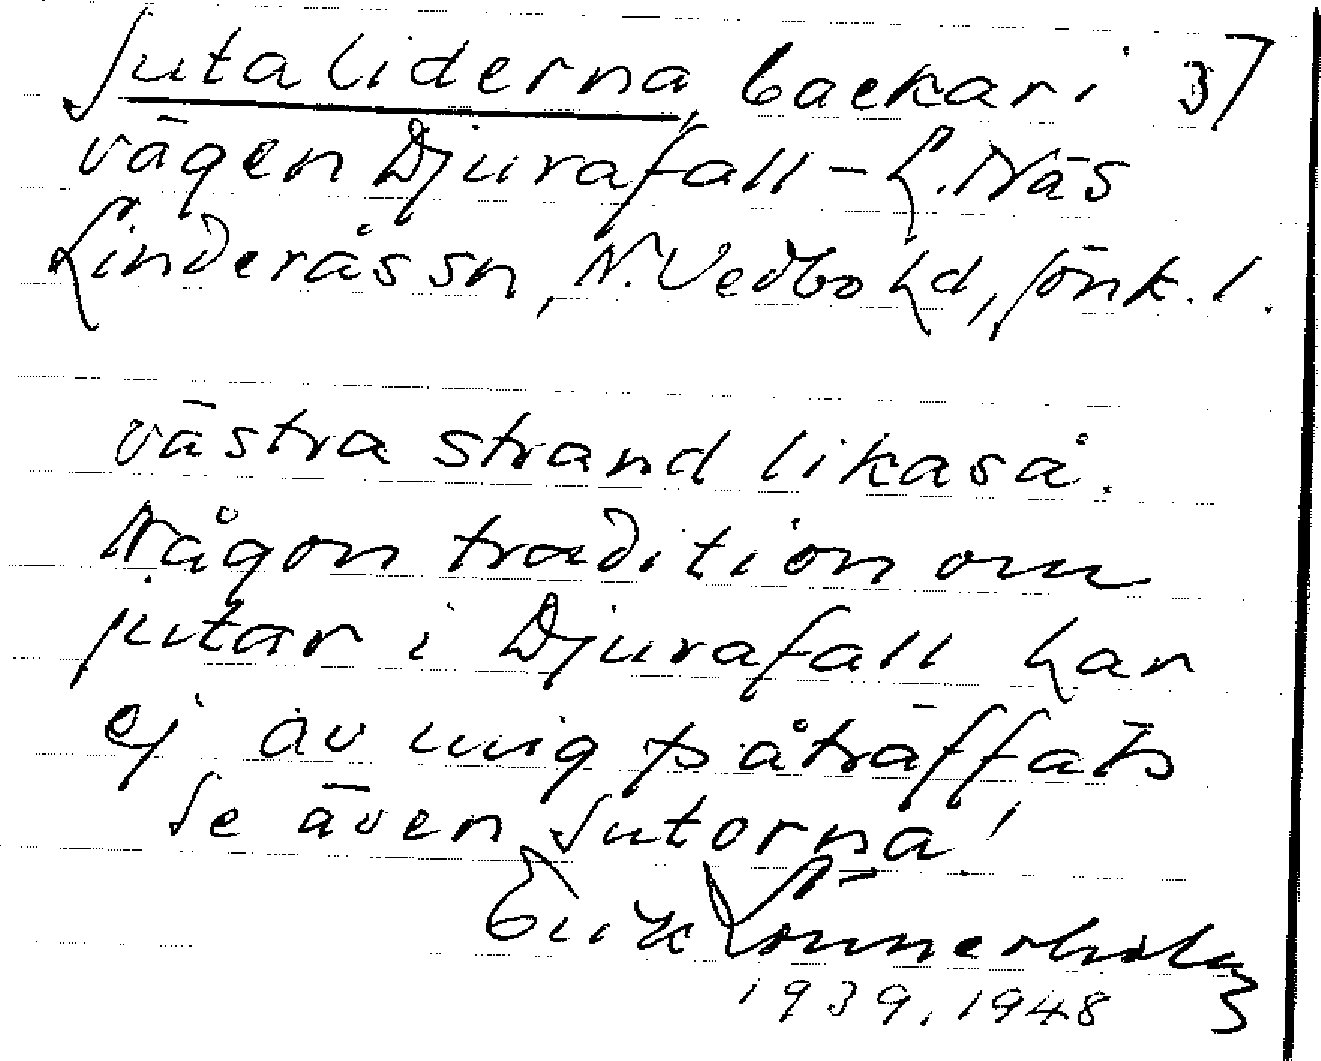 Jutaliderna, backar i 3]
vägen Djurafall - L. Näs
Linderås sn, N. Vedbo hd, Jönk. l.
västra strand likaså.
Någon tradition om
jutar i Djurafall har
ej av mig påträffats
Se även Jutorna!
Erik Lönnerholm
1939, 1948